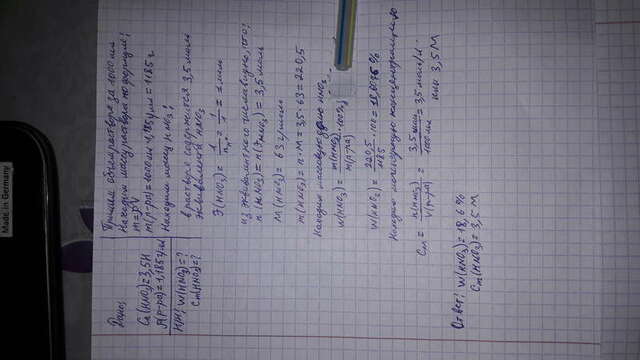 Дано:
Cн(HNO3)=3,5Н
ρ(р-ра)=1,185г/мл
Найти: W(HNO3)=?
Cm(HNO3)=?
Примем объем раствора за 1000 мл
Находим массу раствора по формуле:
m=ρV
m(р-ра)=1000мл·1,185г/мл=1185г.
Находим массу HNO3:
в растворе содержится 3,5 моль
эквивалентов HNO3
Э(HNO3)= 1/nн+ = 1/1 = 1 моль
из эквивалентного числа видно, что:
n(HNO3)=n(fэHNO3)=3,5 моль
M(HNO3)=63 г/моль
m(HNO3)=n·M=3,5·63=220,5
Находим массовую долю HNO3
W(HNO3)= m(HNO3)·100% / m(р-ра)
W(HNO3)= 220,5/1185 ·100= %
Находим молярную концентрацию
Cm= n(HNO3)/V(р-ра) = 3,5 моль/1000мл = 3,5 моль/л
или 3,5М
Ответ: W(HNO3)=18,6%
Cm(HNO3)=3,5М
Made in Germany